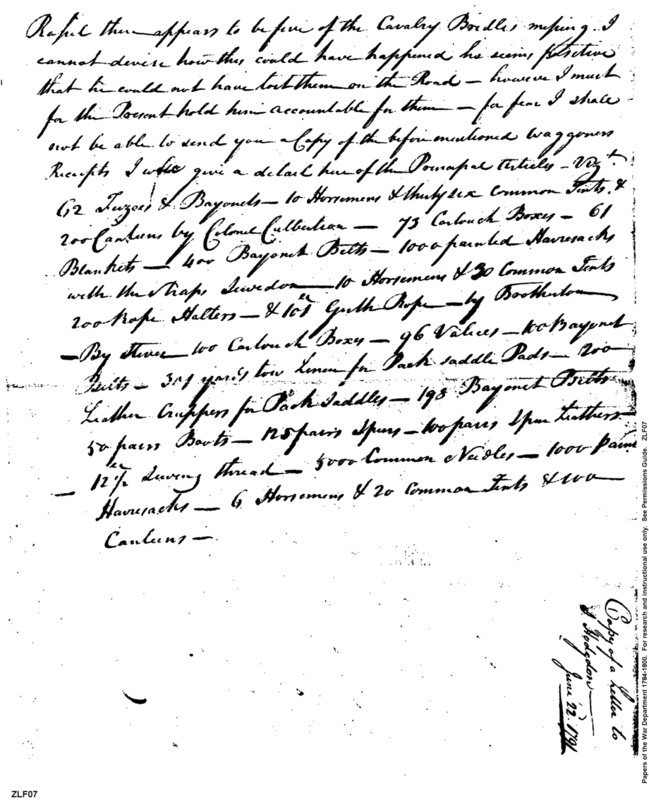 Rafied there appears to be five of the Cavalry Bridles missing. I
cannot devise how this could have happened he seems positive
that he could not have lost them on the Road — however I must
for the Present hold him accountable for them — for fear I shall
not be able to send you a Copy of the before mentioned waggoners
Receipts I will give a detail here of the Principal Articles — Viz.t
62 Fuzees & Bayonets — 10 Horsemens & thirty six Common Tents &
200 Canteens by Colonel — 73 Cartouch Boxes — 61
Blankets — 400 Bayonet Belts — 1000 painted Havresacks
with the Straps Sewed on — 10 Horsemens & 30 Common Tents
200 Rope Halters — & Girth Rope — by Brotherton
— By — 100 Cartouch Boxes — 96 Valices — 100 Bayonet
Belts — 301 yards tow Linen for Pack saddle Pads — 200
Leather Cruppers for Pack Saddles — 193 Bayonet Belts
50 pairs Boots — 125 pairs Spurs — 100 pairs Spur Leathers
— 12 Sewing thread — 5000 Common Needles — 1000
Havresacks — 6 Horsemens & 20 Common Tents & 100
Canteens —
Copy of a Letter to
S. Hodgdon
June 22d. 1791
Papers of the War Department 1784-1800. For research and instructional use only. See Permissions Guide. ZLF07
ZLF07